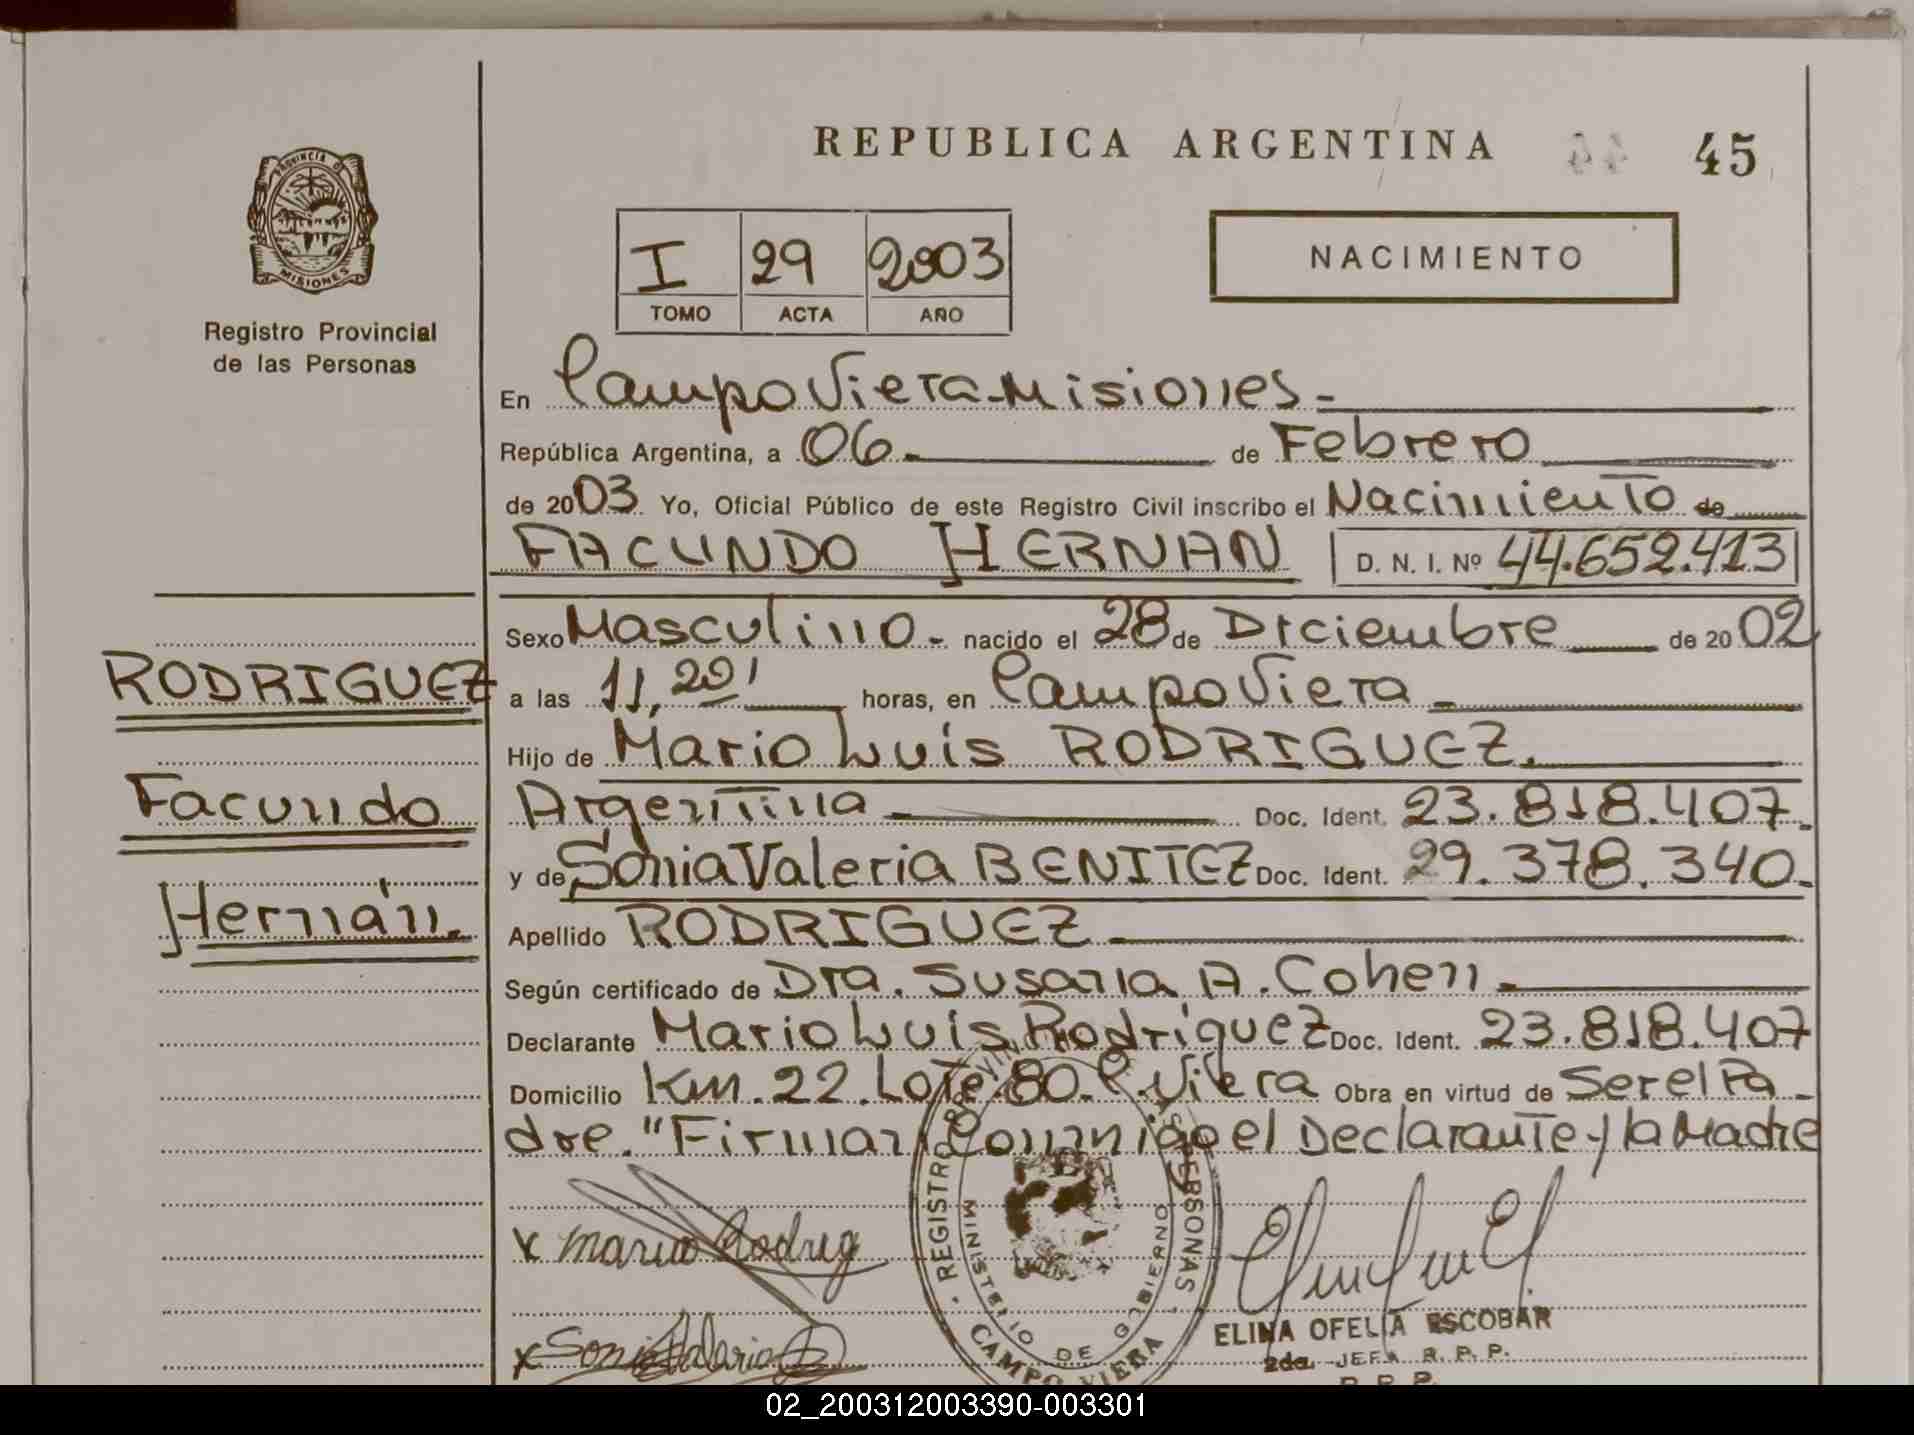 REPUBLICA ARGENTINA 45
PROVINCIA DE
MISIONES
Registro Provincial
de las Personas
I 29 2003
TOMO ACTA AÑO
NACIMIENTO
En Campo Viera-Misiones.-
República Argentina, a 06.- de Febrero
de 2003. Yo, Oficial Público de este Registro Civil inscribo el Nacimiento de
FACUNDO HERNAN D. N. I. Nº 44.652.413
Sexo Masculino.- nacido el 28 de Diciembre de 2002
a las 11,20' horas, en Campo Viera.-
Hijo de Mario Luis RODRIGUEZ.
Argentina Doc. Ident. 23.818.407.
y de Sonia Valeria BENITEZ Doc. Ident. 29.378.340.
Apellido RODRIGUEZ
Según certificado de Dra. Susana A. Cohen.
Declarante Mario Luis Rodriguez Doc. Ident. 23.818.407
Domicilio Km. 22. Lote. 80. C. Viera Obra en virtud de Ser el Pa-
dre. "Firman Conmigo el Declarante y la Madre
RODRIGUEZ
Facundo
Hernán.
x Mario Rodrig
x Sonia Valeria
REGISTRO PERSONAS
MINISTERIO DE GOBIERNO
CAMPO VIERA
ELINA OFELIA ESCOBAR
2da. JEFA R. P. P.
R. P. P.
02_200312003390-003301